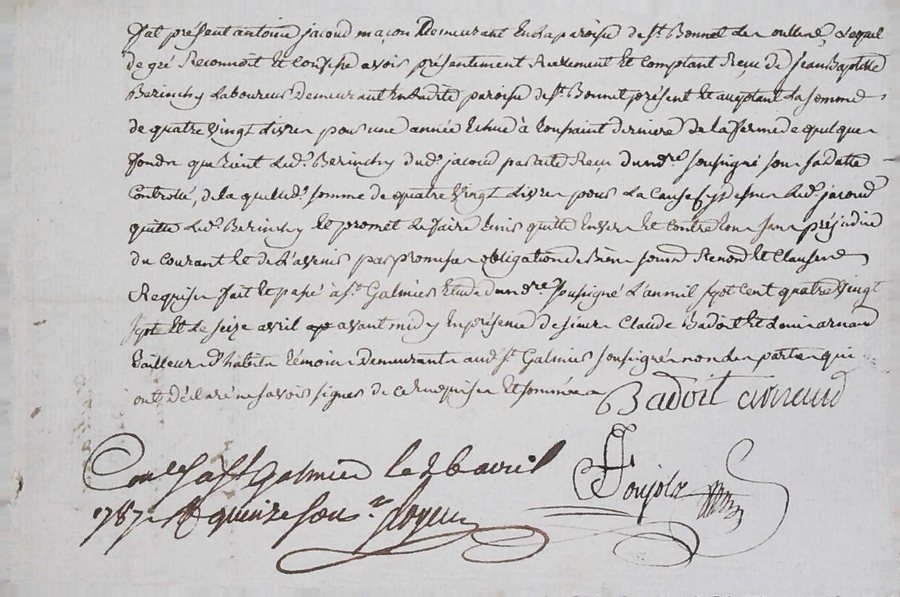 fut présent antoine jacoud maçon Demeurant En la paroisse de St. Bonnet Les oulles, Lequel
de gré Reconnoit Et Confesse avoir présentement Réellement Et Comptant Reçu de jean Baptiste
Berinchy Laboureur Demeurant En ladite paroisse de St. Bonnet présent Et aceptant La somme
de quatre vingt Livres pour une année Echue à toussaint derniere de la ferme de quelques
fonds que tient Led. Berinchy dud. jacoud par acte Reçu du ndre. sousigné sous sa datte
Controllé, de la quelle d. somme de quatre vingt Livres pour La Cause sus ditte Led. jacoud
quitte Led. Berinchy Et promet Le faire tenir quitte Envers Et Contre tous sans préjudice
du Courant Et de L'avenir par promesse obligation de Biens soumd Renond Et Clauses
Requises fait Et passé à St. Galmier Etude du ndre. sousigné L'an mil sept Cent quatre vingt
sept Et Le seize avril avant midy En présence de sieur Claude Badoit Et arnaud
tailleur D'habits témoins Demeurants aud. St. Galmier sousignés non les parties qui
ont Déclaré ne savoir signer de ce Enquises Et sommées
Badoit arnaud
Conlé à St Galmier le 26 avril
1787 R quinze sous
Ponjols